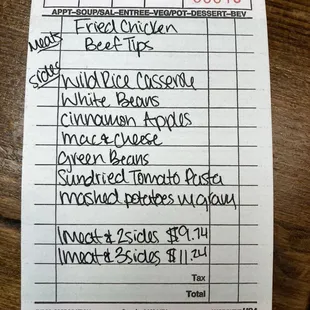 APPT-SOUP/SAL-ENTREE-VEG/POT-DESSERT-BEV
meats
Fried Chicken
Beef Tips
sides
Wild Rice Casserole
White Beans
Cinnamon Apples
mac & cheese
Green Beans
Sundried Tomato Pasta
mashed potatoes w gravy
1 meat & 2 sides $9.74
1 meat & 3 sides $11.24
Tax
Total